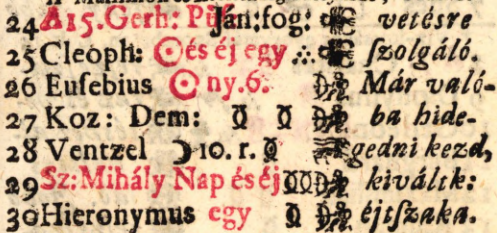 24 A 15. Gerh: Pü Ján: fog: vetésre
25 Cleoph: ☉ és éj egy ſzolgáló.
26 Euſebius ☉ ny. 6. Már való-
27 Koz: Dem: ba hide-
28 Ventzel ☽ 10. r. gedni kezd,
29 Sz: Mihály Nap és éj kiváltk:
30 Hieronymus egy éjtſzaka.